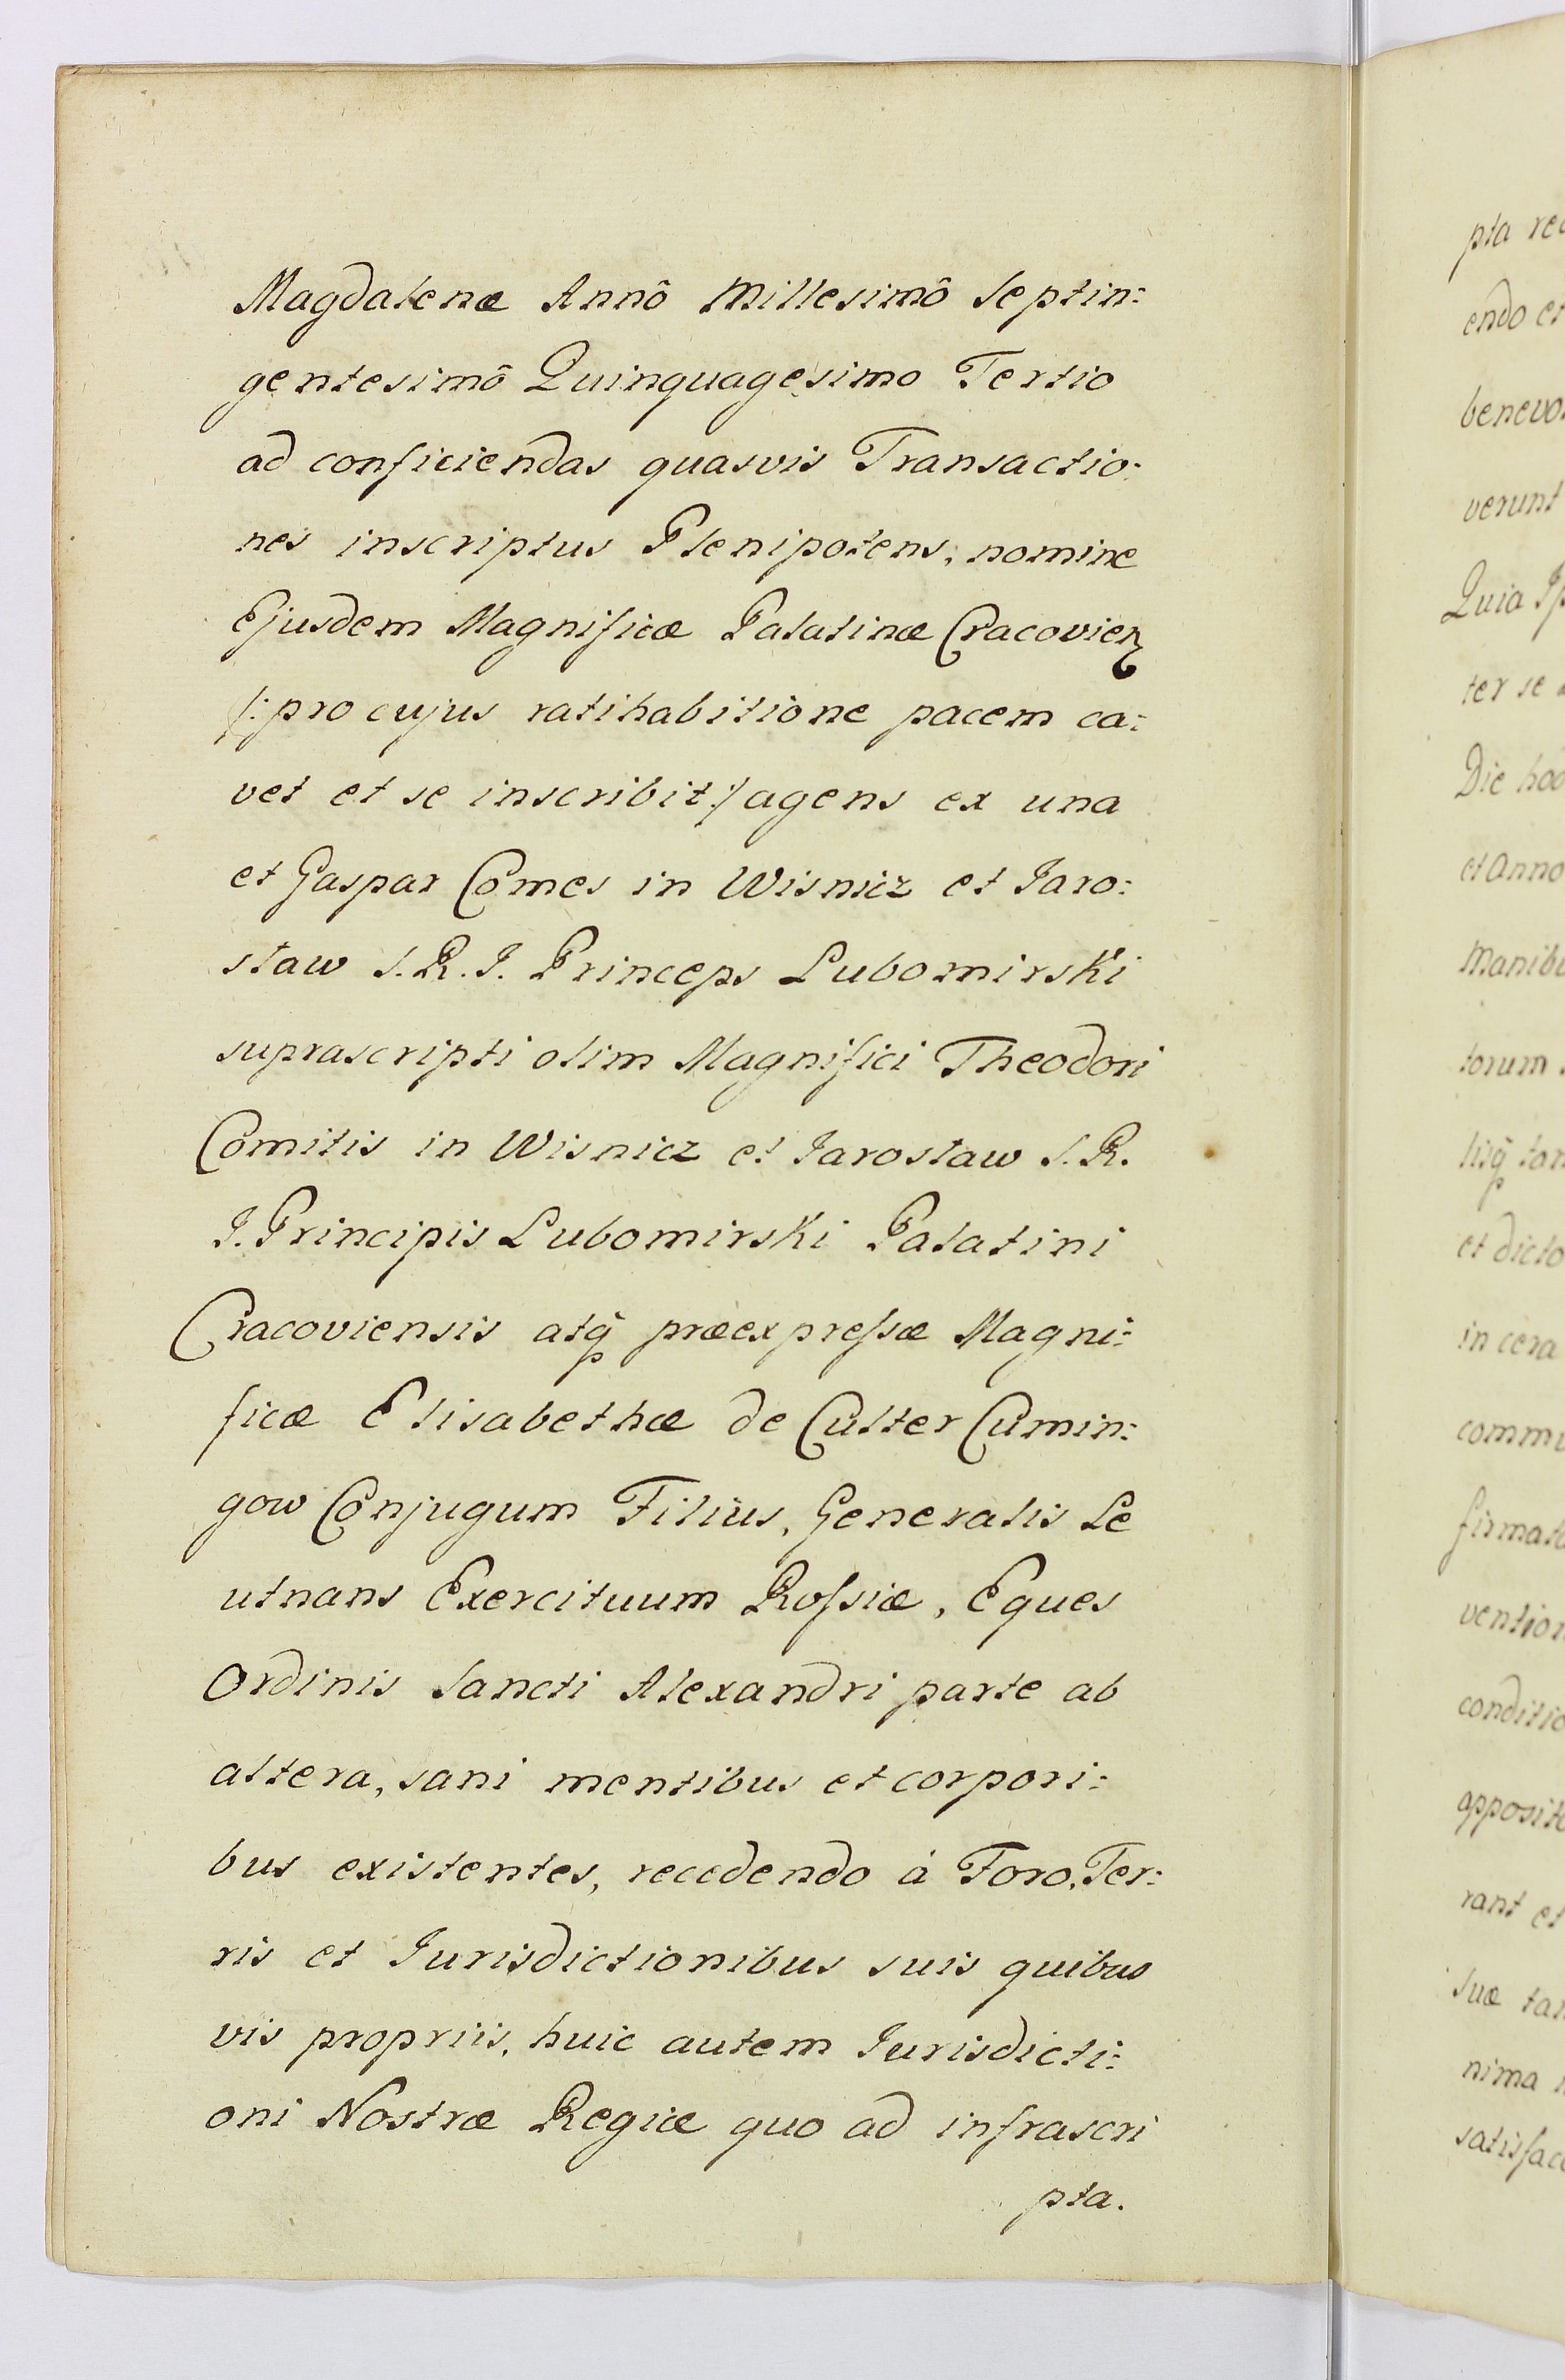 Magdalenæ Annô Millesimô Septin:
gentesimô Quinquagesimo Tertio
ad conficiendas quasvis Transactio:
nes inscriptus Plenipotens, nomine
Ejusdem Magnificæ Palatinæ Cracovien
/: pro cujus ratihabitione pacem ca:
vet et se inscribit :/ agens ex una
et Gaspar Comes in Wisnicz et Jaro:
sław S. R. J. Princeps Lubomirski
suprascripti olim Magnifici Theodori
Comitis in Wisnicz et Jarosław S. R.
J. Principis Lubomirski Palatini
Cracoviensis atq̃ præexpressæ Magni:
ficæ Elisabethæ de Culter Cumin:
gow Conjugum Filius, Generalis Le
utnans Exercituum Rossiæ, Eques
Ordinis Sancti Alexandri parte ab
altera, sani mentibus et corpori:
bus existentes, recedendo à Foro, Ter:
ris et Jurisdictionibus suis quibus
vis propriis, huic autem Jurisdicti:
oni Nostræ Regiæ quo ad infrascri
pta.
pta
endo
benevo
verunt
Quia
ter se
Die
et Anno
Manib
torum
lisq̃
et dicto
in cera
comm
firmat
vention
conditio
opposit
rant et
suæ
nima
satisfac